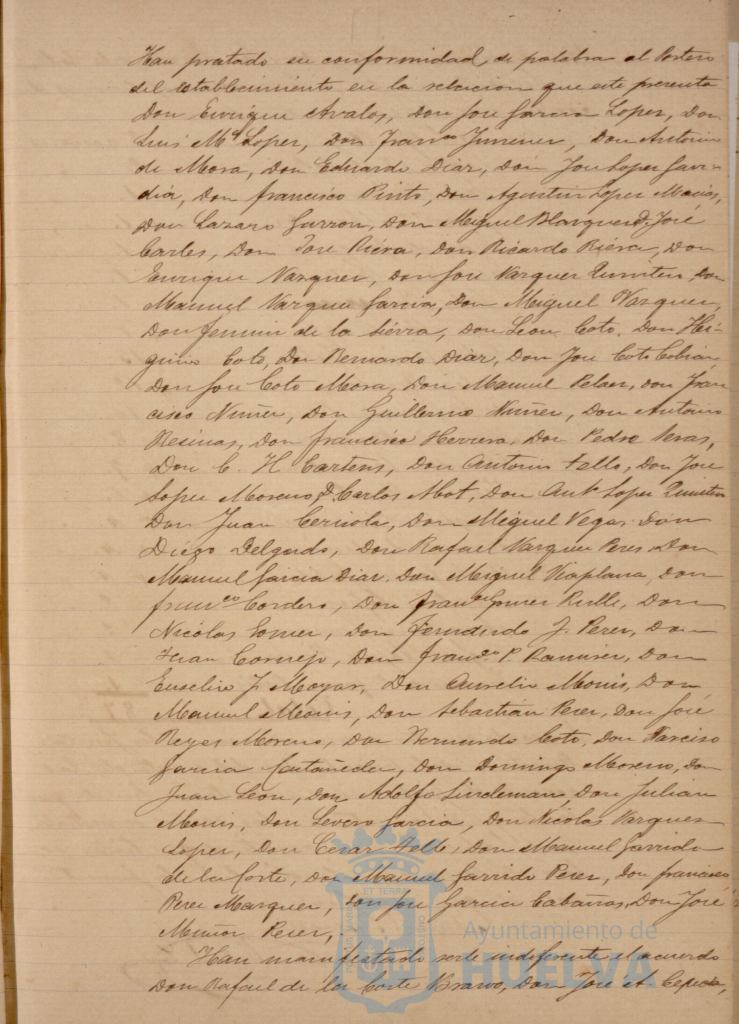 Han prestado su conformidad de palabra al Portero
del establecimiento en la relacion que este presenta
Don Enrique Avalos, Don Jose Garcia Lopez, Don
Luis Mª Lopez, Don Franco Jimenez, Don Antonio
de Mora, Don Eduardo Diaz, Don Jose Lopez Garri-
dia, Don Francisco Pinto, Don Agustin Lopez Macias,
Don Lazaro Garzon, Don Miguel Blanquer, D. José
Carles, Don Jose Riéra, Don Ricardo Riéra, Don
Enrique Vazquez, Don Jose Vazquez Quintero, Don
Manuel Vazquez Garcia, Don Miguel Vazquez,
Don Fermin de la Siérra, Don Leon Coto. Don Hi-
ginio Coto, Don Bernardo Diaz, Don Jose Coto Cobián
Don Jose Coto Mora, Don Manuel Pelaez, Don Fran-
cisco Nuñez, Don Guillermo Nuñez, Don Antonio
Resinas, Don Francisco Herrera, Don Pedro Seras,
Don C. H. Cartens, Don Antonio Tello, Don Jose
Lopez Moreno, D. Carlos Mot, Don Antº Lopez Quintero
Don Juan Cerisola, Don Miguel Vegas. Don
Diego Delgado, Don Rafael Vazquez Perez, Don
Manuel Garcia Diaz. Don Miguel Viaplana, Don
Franco Cordero, Don Franco Gomez Rulle, Don
Nicolas Gomez, Don Fernando J. Perez, Don
Juan Cornejo, Don Franco P. Ramirez, Don
Eusebio J. Moyar, Don Aurelio Monis, Don
Manuel Monis, Don Sebastian Perez, Don José
Reyes Moreno, Don Bernardo Coto, Don Narciso
Garcia Castañeda, Don Domingo Moreno, Don
Juan Leon, Don Adolfo Lindeman, Don Julian
Monis, Don Severo Garcia, Don Nicolas Vazquez
Lopez, Don Cesar Tello, Don Manuel Garrido
de la Corte, Don Manuel Garrido Perez, Don Francisco
Perez Marquez, Don Jose Garcia Cabañas, Don José
Muñoz Perez,.
Han manifestado serle indiferente el acuerdo
Don Rafael de la Corte Bravo, Don Jose A. Cepeda,
ET TERRAE
Ayuntamiento de
HUELVA